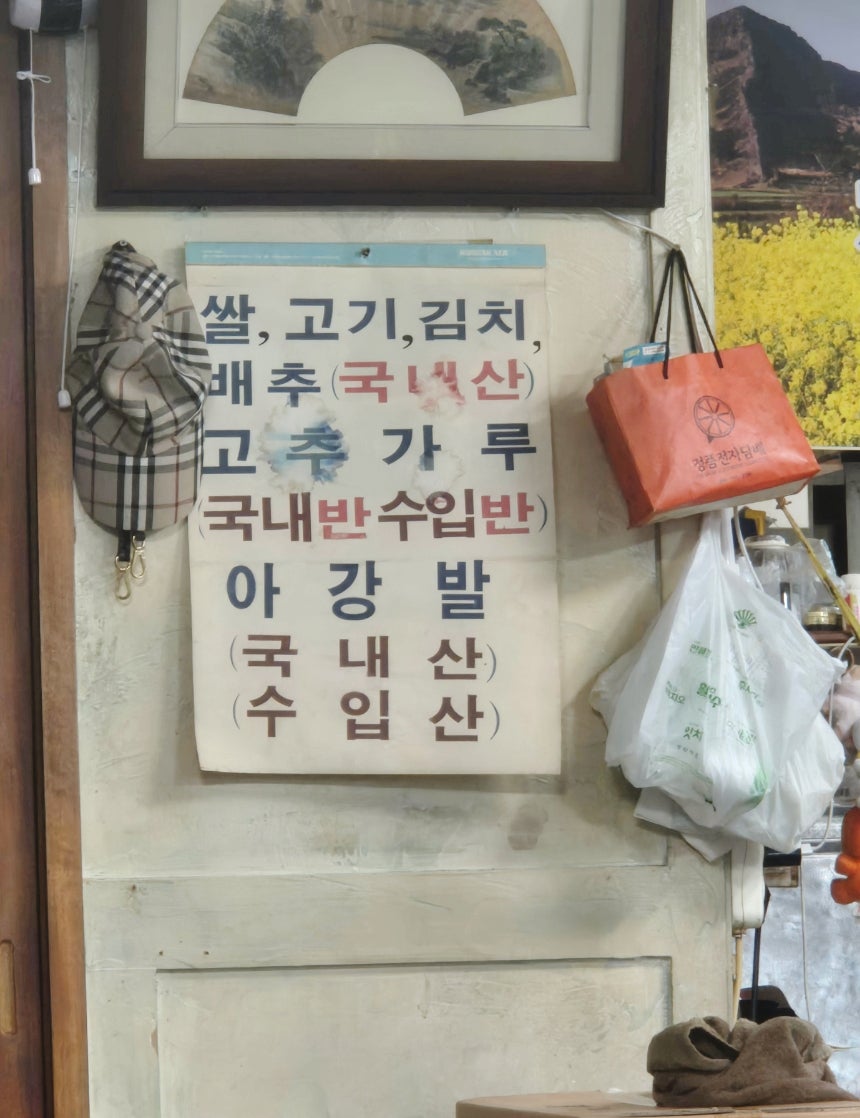 쌀, 고기, 김치,
배추(국내산)
고추가루
(국내반수입반)
아강발
(국내산)
(수입산)
정품전자담배